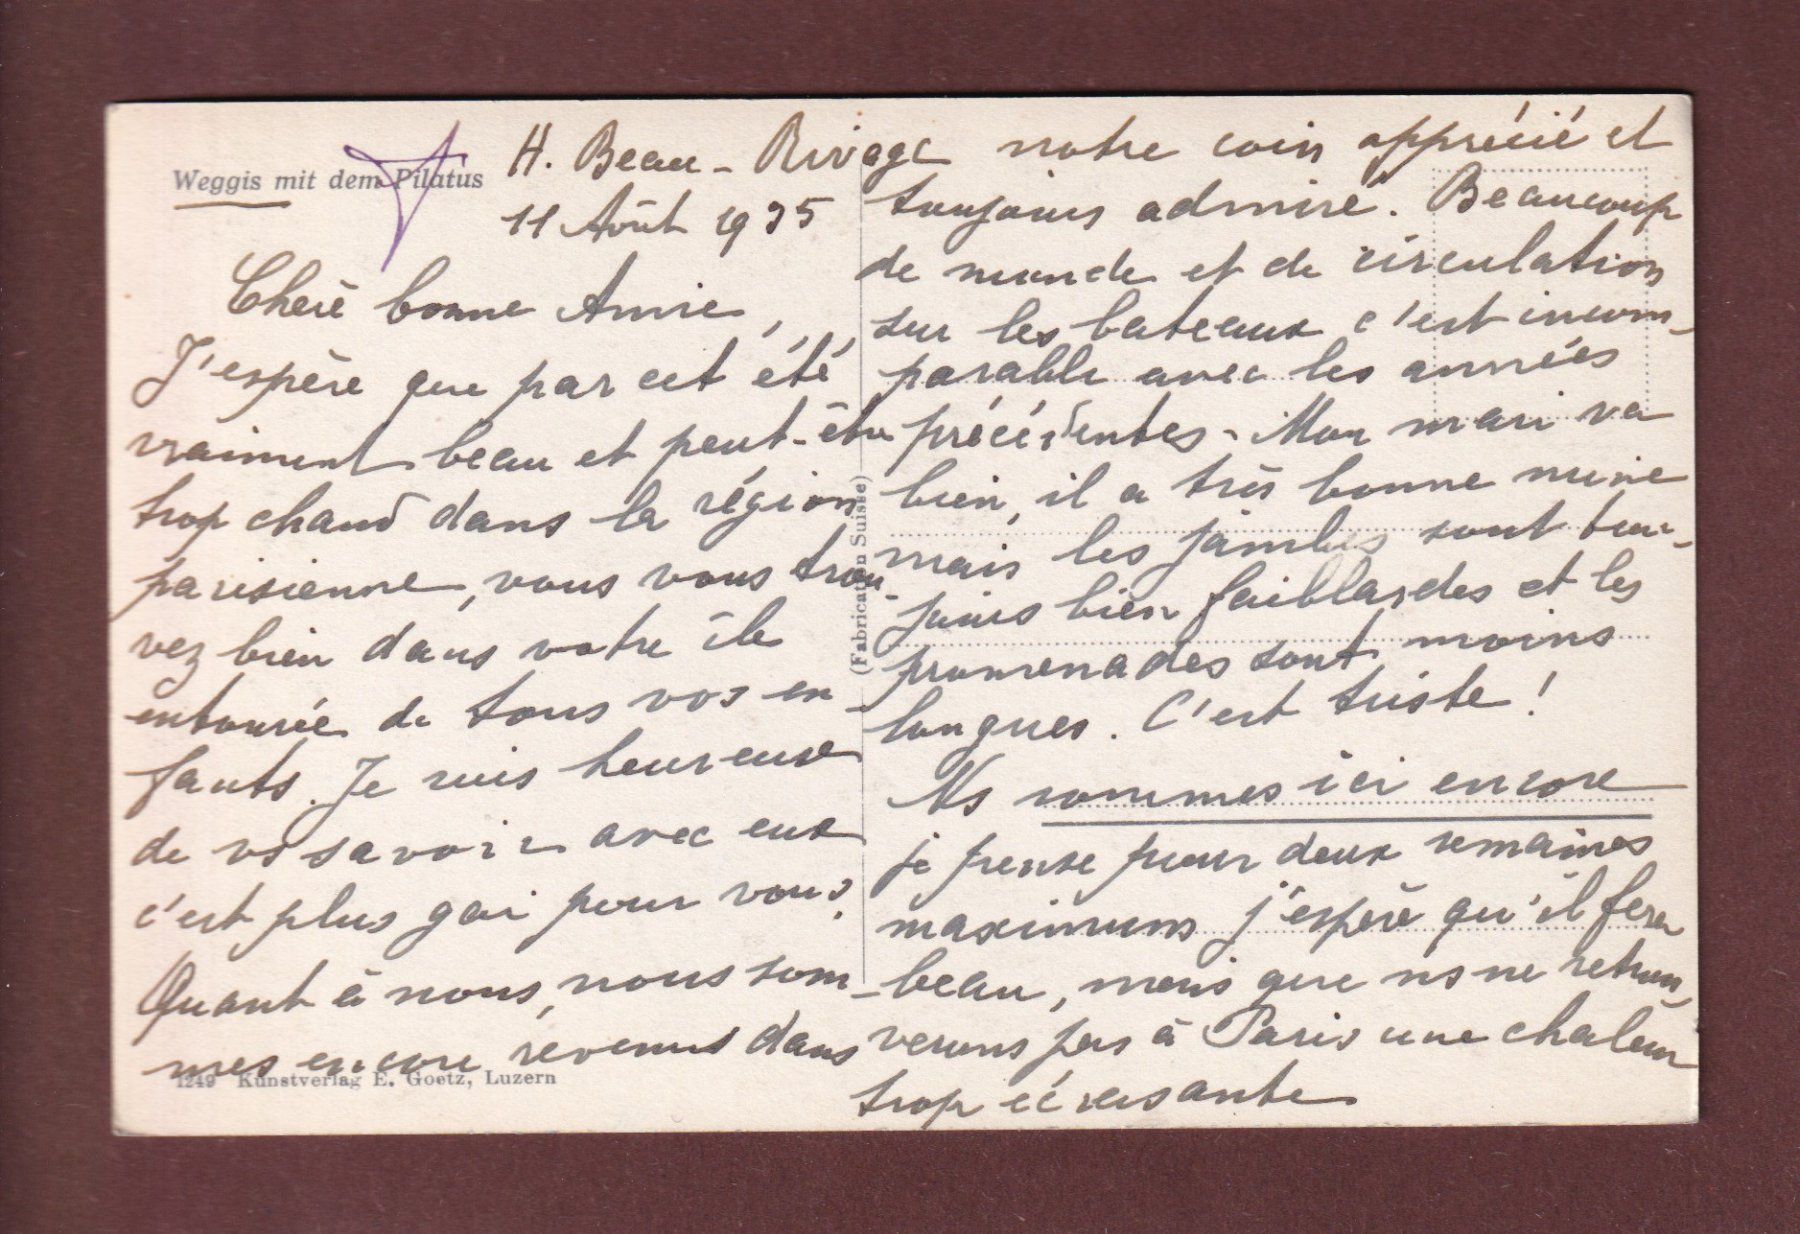 Weggis mit dem Pilatus
H. Beau-Rivage
11 Août 1935
Chère bonne Amie,
J'espère que par cet été,
vraiment beau et peut-être
trop chaud dans la région
parisienne, vous vous trou-
vez bien dans votre île
entourée de tous vos en-
fants. Je suis heureuse
de vs savoir avec eux
c'est plus gai pour vous.
Quant à nous, nous som-
mes encore revenus dans
1249 Kunstverlag E. Goetz, Luzern
(Fabrication Suisse)
notre coin apprécié et
toujours admiré. Beaucoup
de monde et de circulation
sur les bateaux c'est incom-
parable avec les années
précédentes - Mon mari va
bien, il a très bonne mine
mais les jambes sont tou-
jours bien faiblardes et les
promenades sont moins
longues. C'est triste !
Ns sommes ici encore
je pense pour deux semaines
maximum j'espère qu'il fera
beau, mais que ns ne retrou-
verons pas à Paris une chaleur
trop écrasante